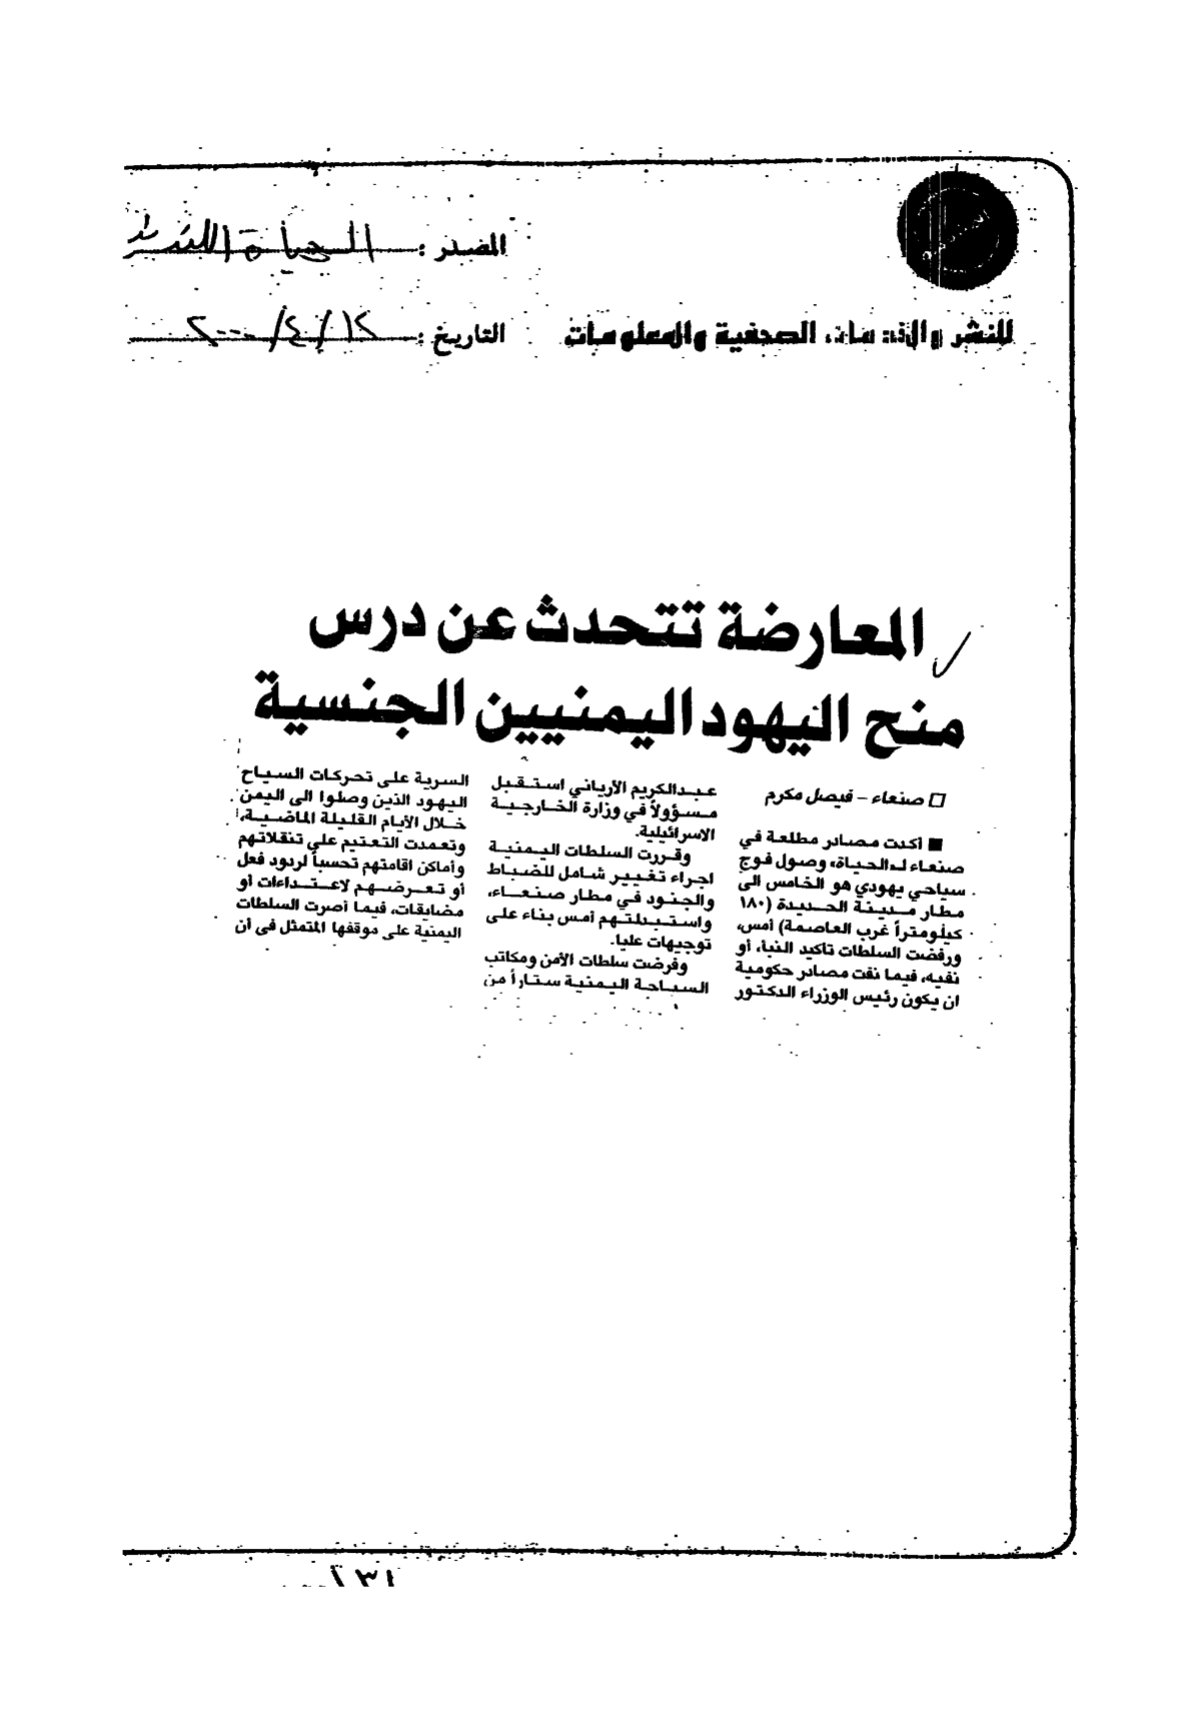 المصدر : الحياة اللندنية
للنشر والخدمات الصحفية والمعلومات
التاريخ : ١٢/٤/٢٠٠٠
المعارضة تتحدث عن درس
منح اليهود اليمنيين الجنسية
□ صنعاء - فيصل مكرم
■ أكدت مصادر مطلعة في
صنعاء لـ«الحياة» وصول فوج
سياحي يهودي هو الخامس الى
مطار مدينة الحديدة (١٨٠
كيلومتراً غرب العاصمة) أمس،
ورفضت السلطات تأكيد النبأ، أو
نفيه، فيما نفت مصادر حكومية
ان يكون رئيس الوزراء الدكتور
عبدالكريم الأرياني استقبل
مسؤولاً في وزارة الخارجية
الاسرائيلية.
وقررت السلطات اليمنية
اجراء تغيير شامل للضباط
والجنود في مطار صنعاء،
واستبدلتهم أمس بناء على
توجيهات عليا.
وفرضت سلطات الأمن ومكاتب
السياحة اليمنية ستاراً من
السرية على تحركات السياح
اليهود الذين وصلوا الى اليمن
خلال الأيام القليلة الماضية،
وتعمدت التعتيم على تنقلاتهم
وأماكن اقامتهم تحسباً لردود فعل
أو تعرضهم لاعتداءات أو
مضايقات، فيما أصرت السلطات
اليمنية على موقفها المتمثل في أن